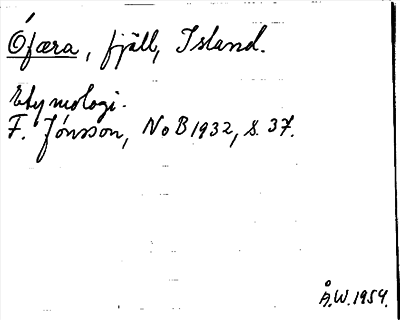 Ófæra, fjäll, Island.
Etymologi.
F. Jónsson, NoB 1932, s. 37.
Å.W. 1954.